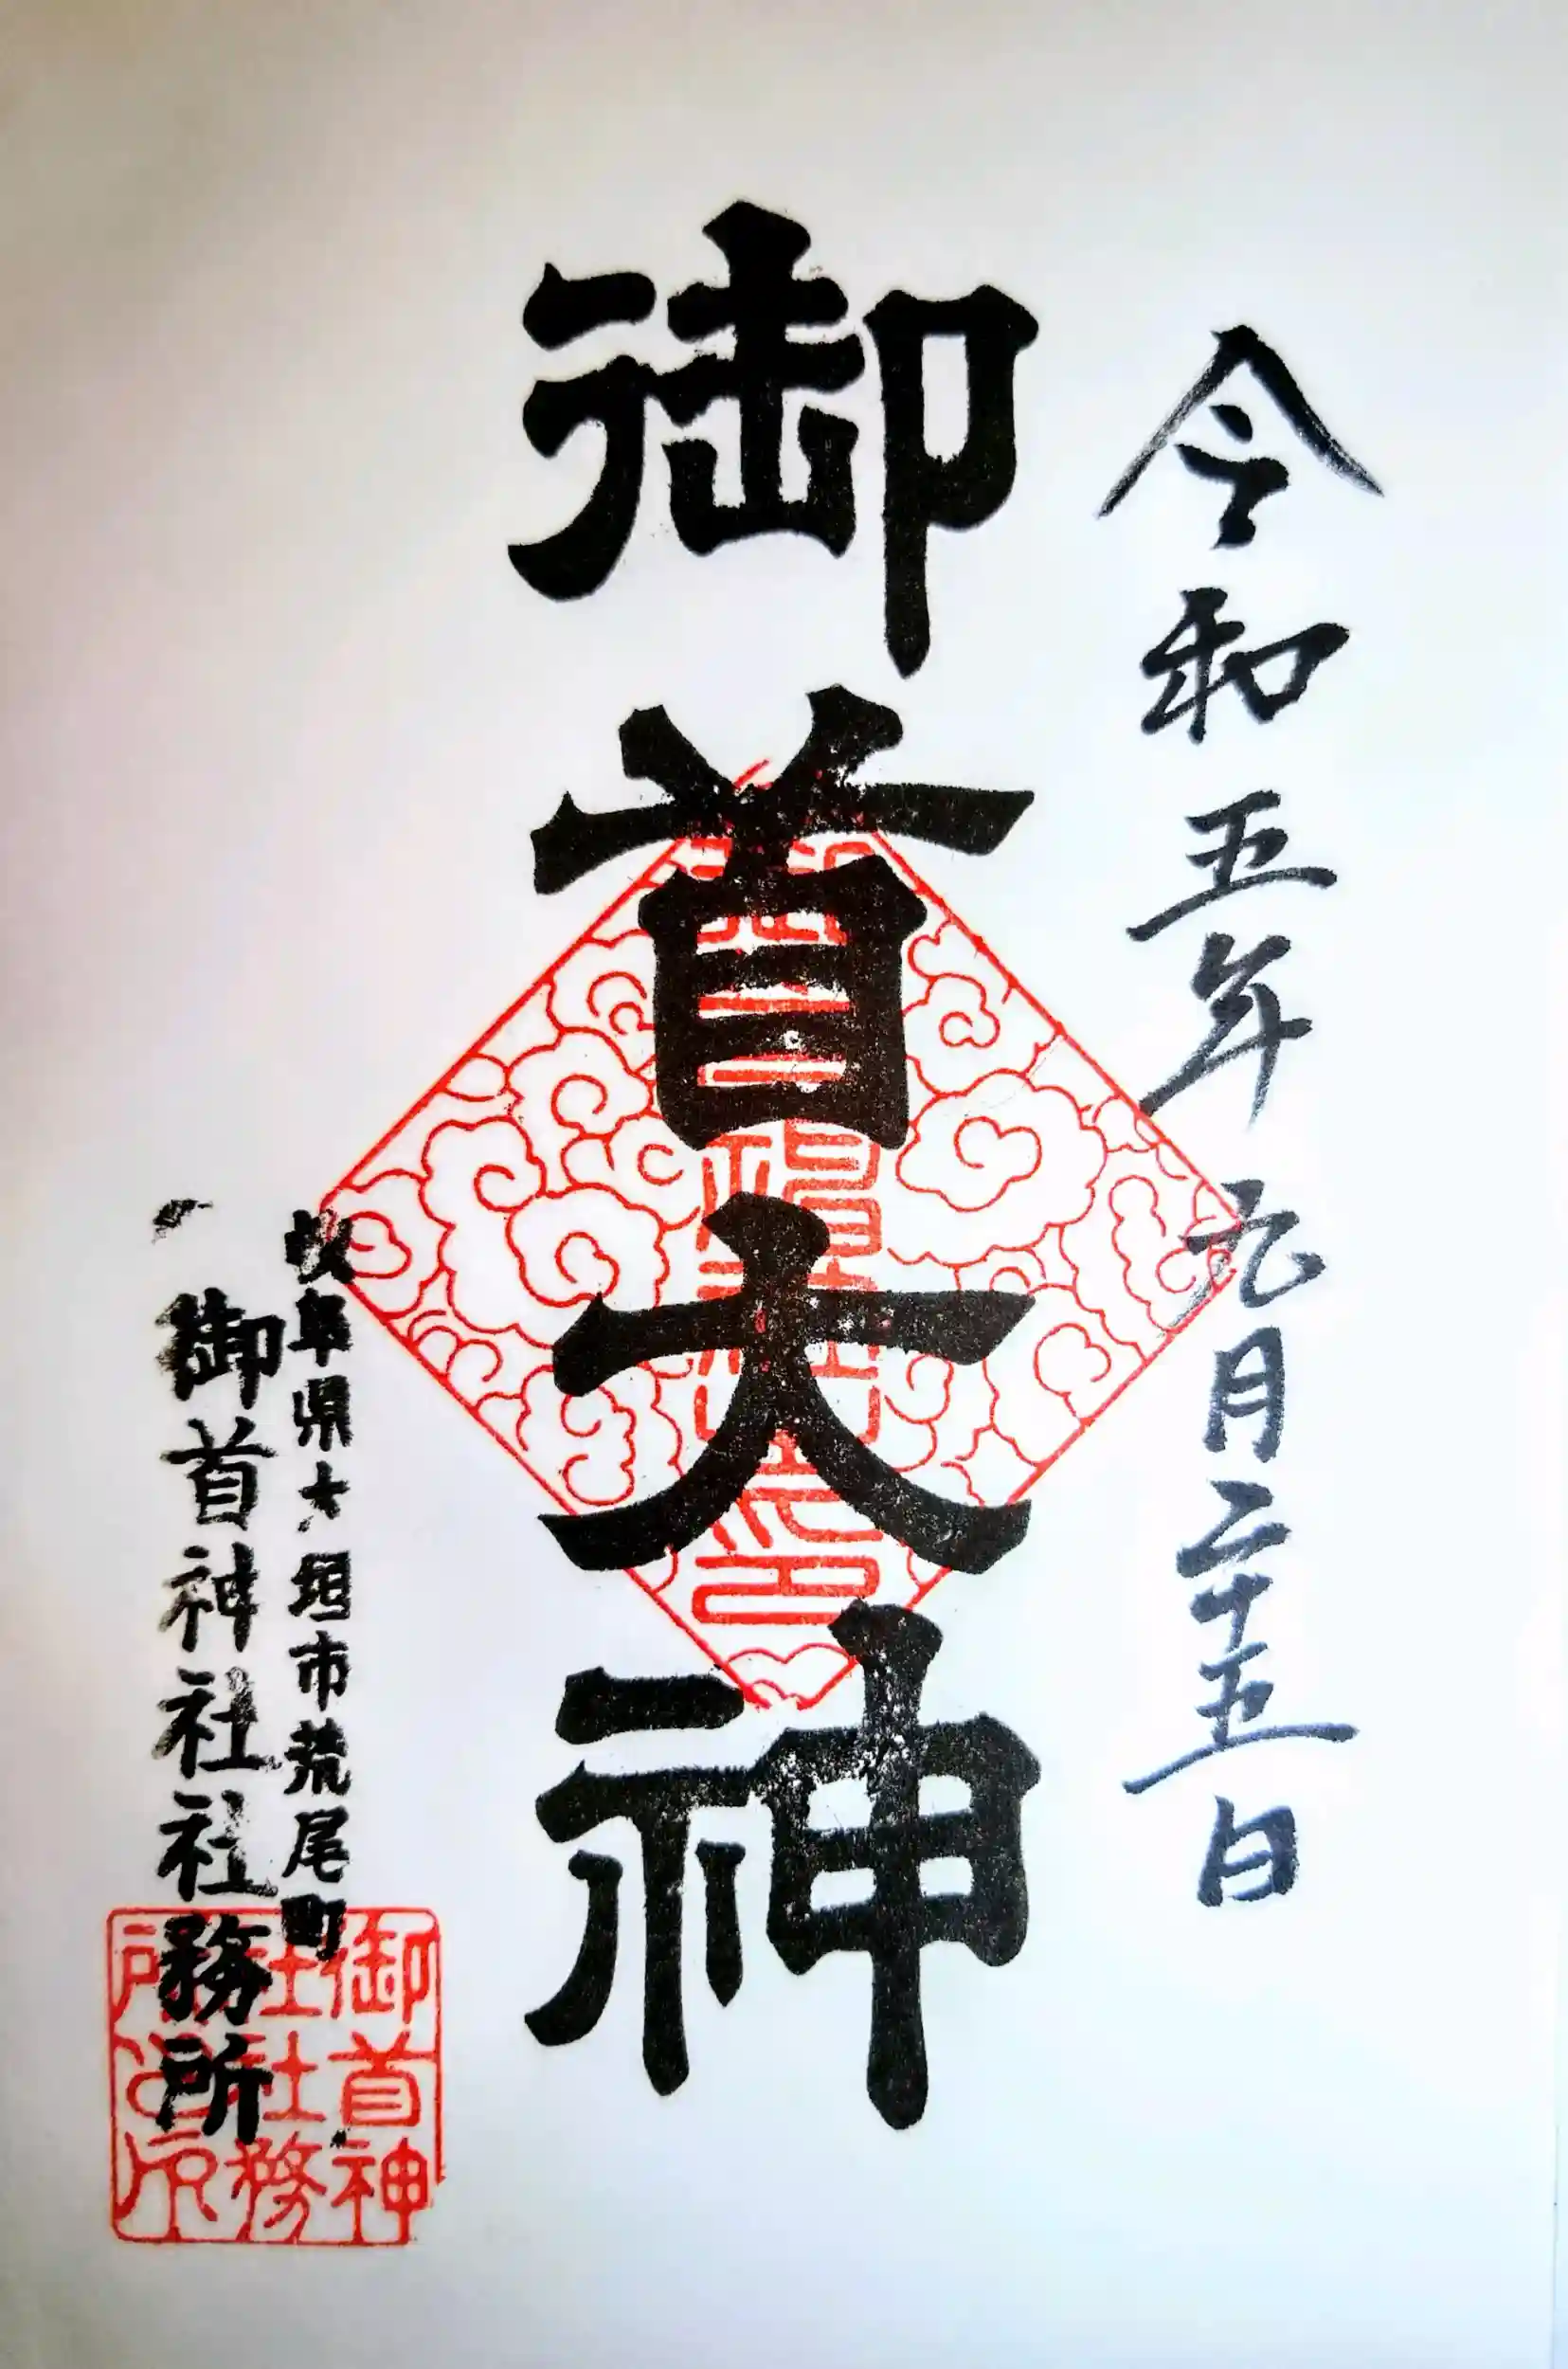 令和五年元月二十五日
御首大神
岐阜県大垣市荒尾町
御首神社社務所
御首神
社社務